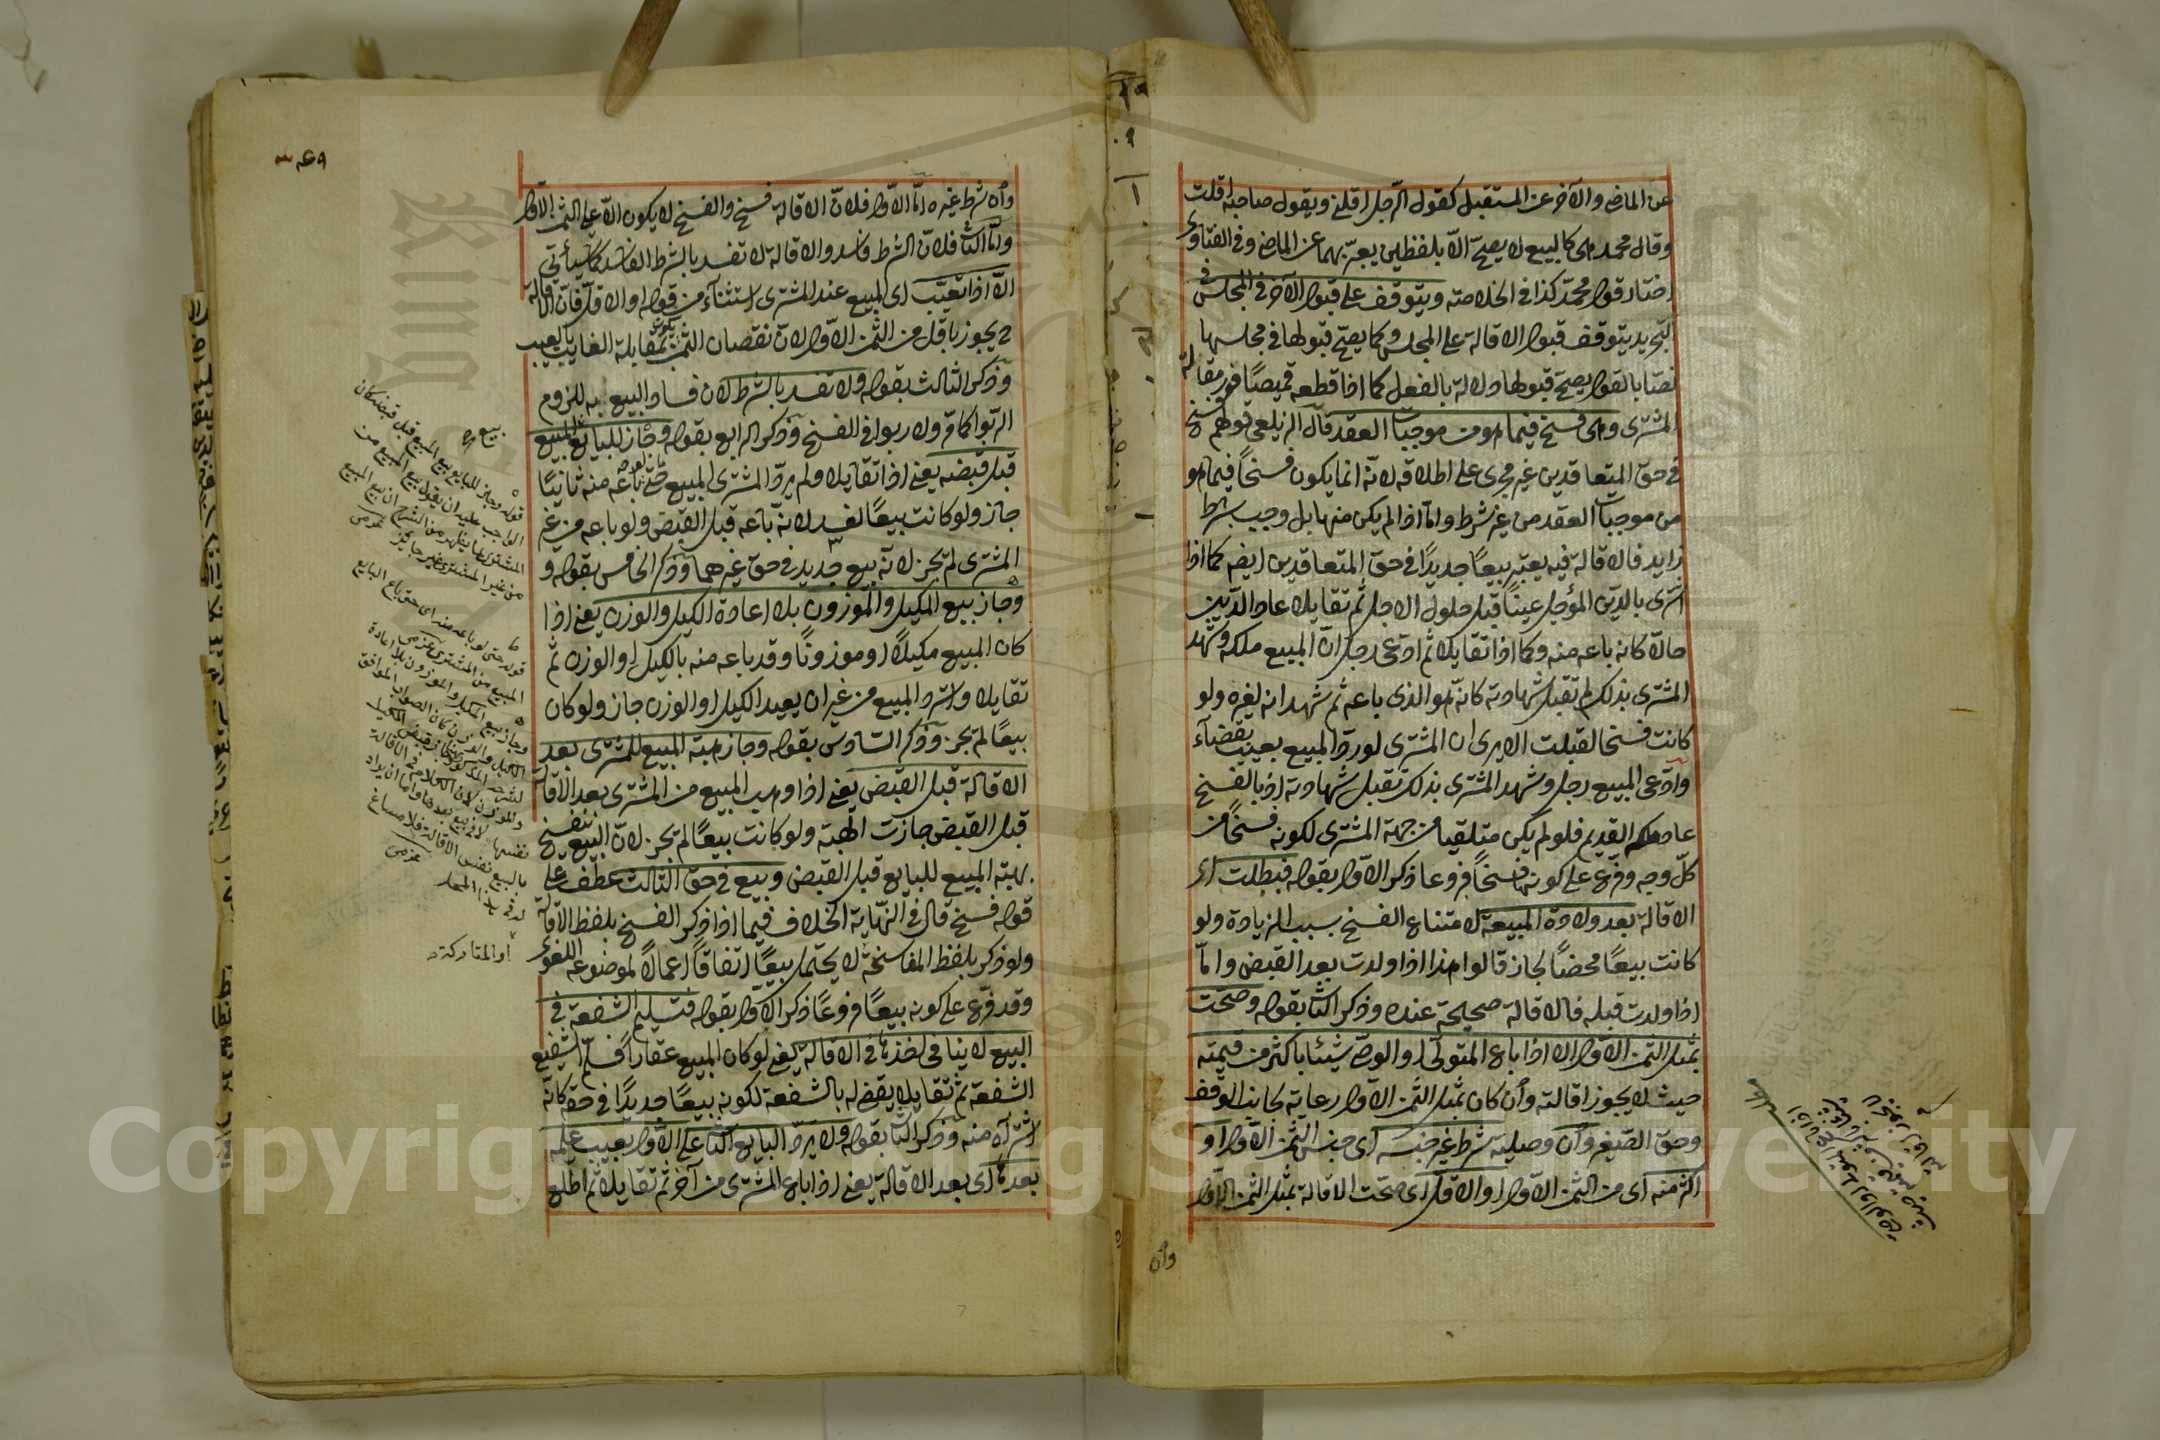 عن الماضي والآخر عن المستقبل كقول الرجل اقلني ويقول صاحبه اقلت
وقال محمد هي كالبيع لا يصح الا بلفظين يعبر بهما عن الماضي وفي الفتاوى
اختار قول محمد كذا في الخلاصة ويتوقف على قبول الآخر في المجلس في
التجريد يتوقف قبول الاقالة على المجلس وكما يصح قبولها في مجلسها
نصا بالقول يصح قبولها دلالة بالفعل كما اذا قطعه قميصا فور مقالة
المشتري وهي فسخ فيما هو من موجبات العقد قال الزيلعي قولهم فسخ
في حق المتعاقدين غير مجرى على اطلاقه لانه انما يكون فسخا فيما هو
من موجبات العقد من غير شرط واما اذا لم يكن منها بل وجب بشرط
زايد فالاقالة فيه يعتبر بيعا جديدا في حق المتعاقدين ايضه كما اذا
اشترى بالدين المؤجل عينا قبل حلول الاجل ثم تقايلا عاد الدين
حالا كانه باعه منه وكما اذا تقايلا ثم ادعى رجل ان المبيع ملكه وشهد
المشتري بذلك لم تقبل شهادته كانه هو الذي باعه ثم شهد انه لغيره ولو
كانت فسخا لقبلت الا يرى ان المشتري لو رد المبيع بعيب بقضاء
وادعى المبيع رجل وشهد المشتري بذلك تقبل شهادته اذ بالفسخ
عاد ملكه القديم فلو لم يكن متلقيا من جهة المشتري لكونه فسخا من
كل وجه وفرع على كونها فسخا فروعا ذكر الاول بقوله فبطلت اى
الاقالة بعد ولادة المبيعة لامتناع الفسخ بسبب الزيادة ولو
كانت بيعا محضا لجاز قالوا هذا اذا ولدت بعد القبض واما
اذا ولدت قبله فالاقالة صحيحة عنده وذكر الثا بقوله وصحت
بمثل الثمن الاول الا اذا باع المتولي او الوصي شيئا باكثر من قيمته
حيث لا يجوز اقالته وان كان بمثل الثمن الاول رعاية لجانب الوقف
وحق الصغير وان وصلية شرط غير جنسه اى جنس الثمن الاول او
اكثر منه اى من الثمن الاول او الاقل اى صحت الاقالة بمثل الثمن الاول
وان
اذا باع المتولي او الوصي
شيئا باكثر من قيمته حيث
لا يجوز اقالته
وان شرط غيره اما الاول فلان الاقالة فسخ والفسخ لا يكون الا على الثمن الاول
واما الثا فلان الشرط فاسد والاقالة لا تفسد بالشرط الفاسد كما سيأتي
الا اذا تعيب اى المبيع عند المشتري استثناء من قوله او الاقل فان الاقالة
ح يجوز باقل من الثمن الاول لان نقصان الثمن يكون بمقابلة الفايت بالعيب
وذكر الثالث بقوله ولا تفسد بالشرط لان فساد البيع به للزوم
الربوا كما مر ولا ربوا في الفسخ وذكر الرابع بقوله وجاز للبايع بيع المبيع
قبل قبضه يعني اذا تقايلا ولم يرد المشتري المبيع حتى باعه منه ثانيا
جاز ولو كانت بيعا لفسد لانه باعه قبل القبض ولو باعه من غير
المشتري لم يجز لانه بيع جديد في حق غيرهما وذكر الخامس بقوله و
وجاز بيع المكيل والموزون بلا اعادة الكيل والوزن يعني اذا
كان المبيع مكيلا او موزونا وقد باعه منه بالكيل او الوزن ثم
تقايلا واسترد المبيع من غير ان يعيد الكيل او الوزن جاز ولو كان
بيعا لم يجز وذكر السادس بقوله وجاز هبة المبيع للمشتري بعد
الاقالة قبل القبض يعني اذا وهب المبيع من المشتري بعد الاقالة
قبل القبض جازت الهبة ولو كانت بيعا لم تجز لان البيع ينفسخ
بهبة المبيع للبايع قبل القبض وبيع في حق الثالث عطف على
قوله فسخ قال في النهاية الخلاف فيما اذا ذكر الفسخ بلفظ الاقالة
ولو ذكر بلفظ المفاسخة لا يحتمل بيعا اتفاقا اعمالا لموضوعه اللغوي
وقد فرع على كونه بيعا فروعا ذكر الاول بقوله فتسليم الشفعة في
البيع لا ينافي اخذها في الاقالة يعني لو كان المبيع عقارا فسلم الشفيع
الشفعة ثم تقايلا يقضى له بالشفعة لكونه بيعا جديدا في حقه كانه
اشتراه منه وذكر الثا بقوله ولا يرد البايع الثا على الاول بعيب علمه
بعدها اى بعد الاقالة يعني اذا باع المشتري من آخر ثم تقايلا ثم اطلع
قوله وجاز للبايع بيع المبيع قبل قبضه كان
الواجب عليه ان يقول بيع المبيع من
المشتري كما يظهر من الشرح ان بيع المبيع
من غير المشتري غير جايز عزمي
قوله حتى لو باعه منه اى حتى باع البايع
المبيع من المشتري عزمي
وجاز بيع المكيل والموزون بلا اعادة
الكيل والوزن كان الصواب الموافق
او المتاركة صح
Copyright © King Saud University